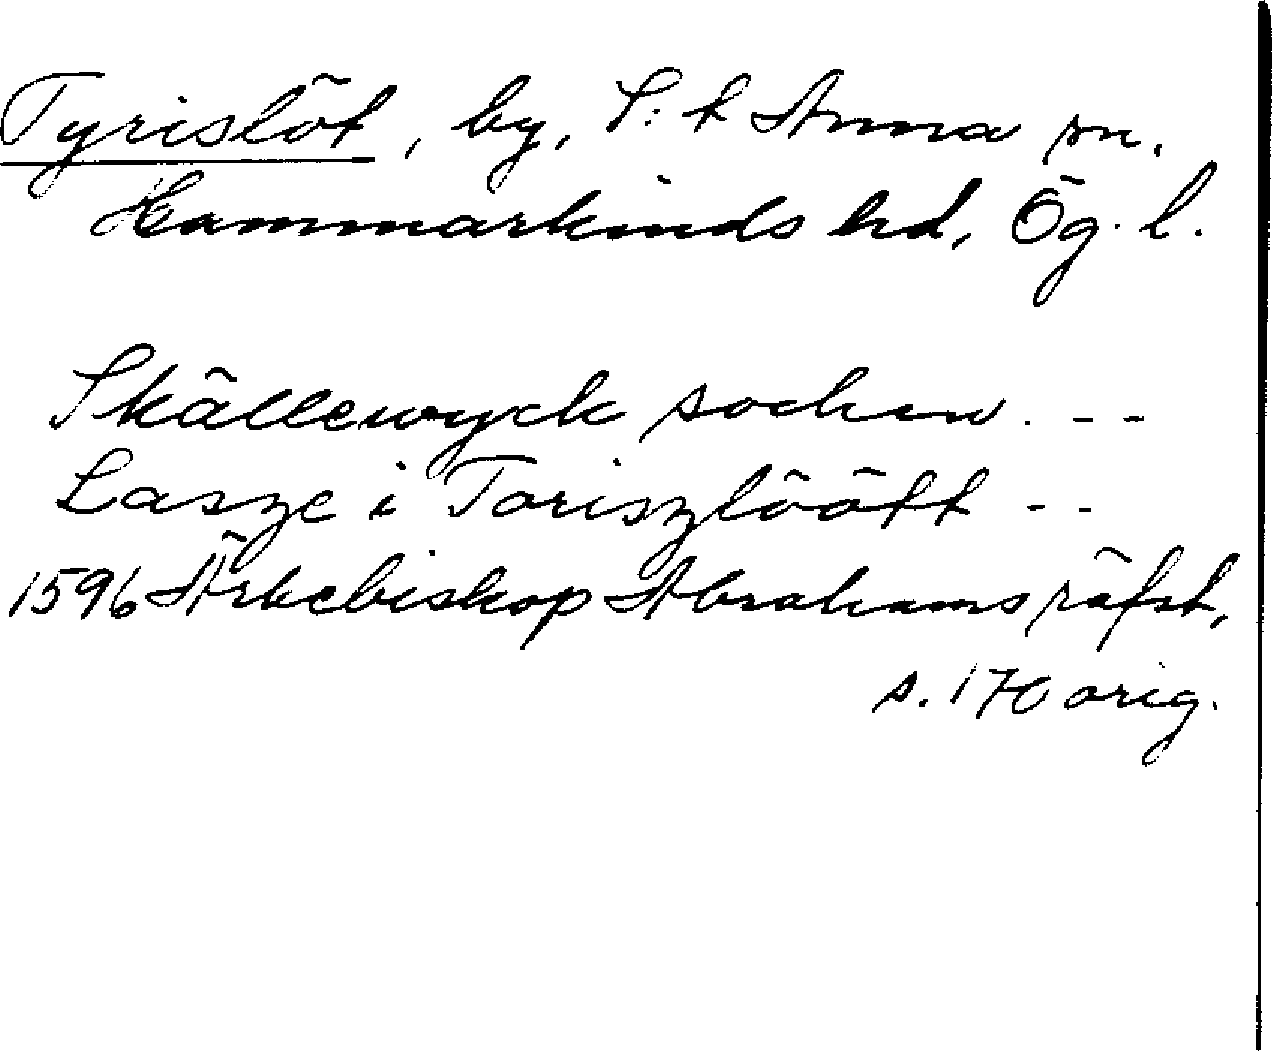 Tyrislöt, by, S:t Anna sn.
Hammarkinds hd, Ög. l.
Skällewyck sochen. - -
Lasze i Toriszlöött - -
1596 Ärkebiskop Abrahams räfst,
s. 170 orig.